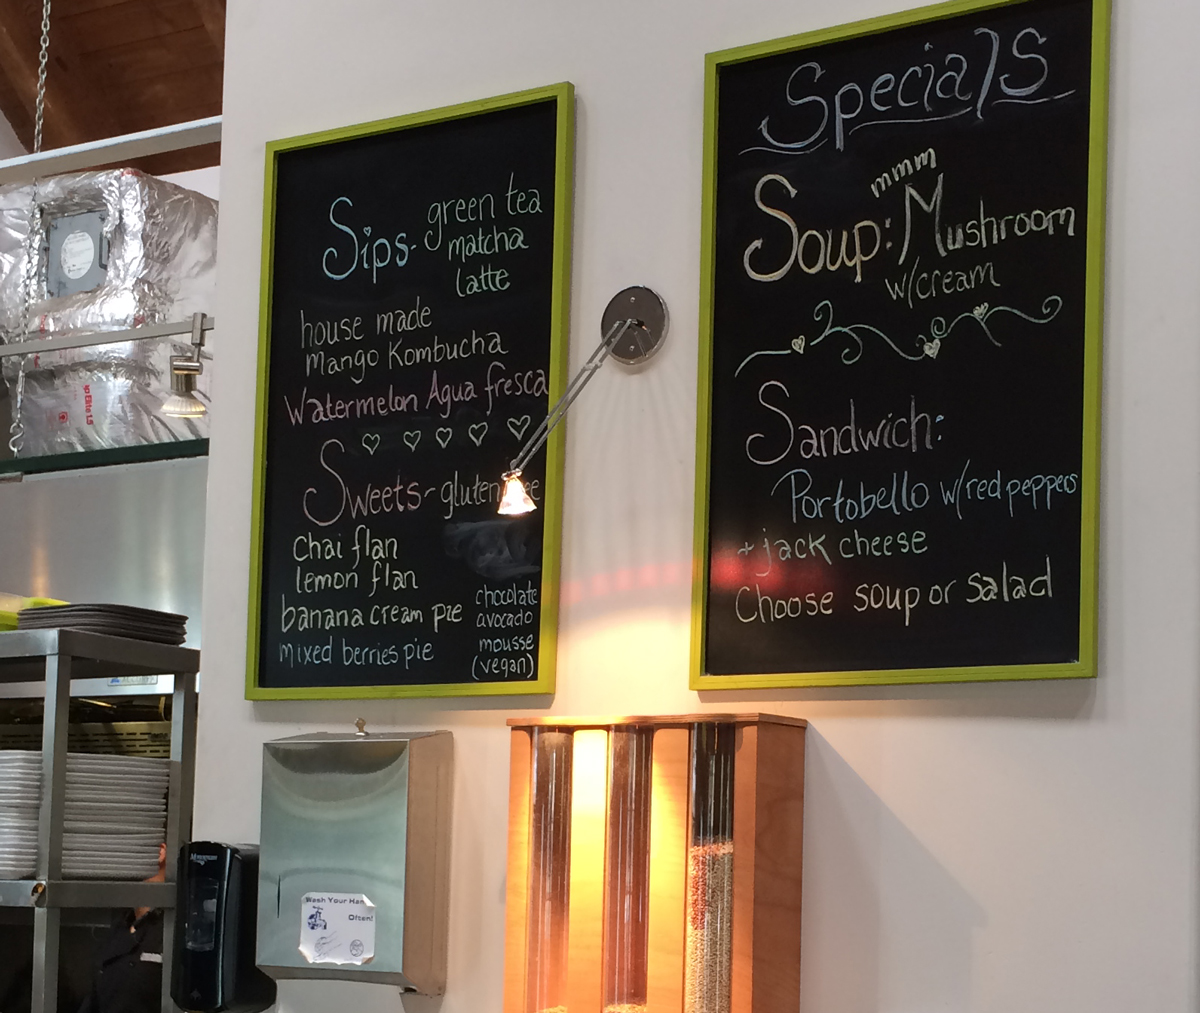 Sips- green tea
matcha
latte
house made
mango Kombucha
Watermelon Agua fresca
Sweets~gluten
chai flan
lemon flan
banana cream pie
mixed berries pie
chocolate
avocado
mousse
(vegan)
Specials
mmm
Soup: Mushroom
w/cream
Sandwich:
Portobello w/red peppers
+ jack cheese
Choose soup or salad
Wash Your Han
Often!